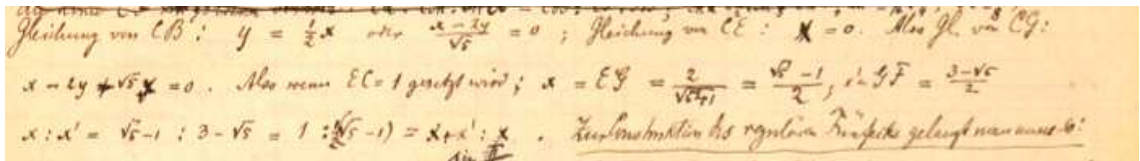 Gleichung von CB : y = ½x oder (x − 2y)/√5 = 0 ; Gleichung von CE : x = 0. Also Gl. von CG:
x − 2y + √5 x = 0 . Also wenn EC = 1 gesetzt wird ; x = EG = 2/(√5+1) = (√5 − 1)/2, GF = (3−√5)/2
x : x' = √5−1 : 3−√5 = 1 : ½(√5−1) = x+x' : x . Zur Construktion des regulären Fünfecks gelangt man :